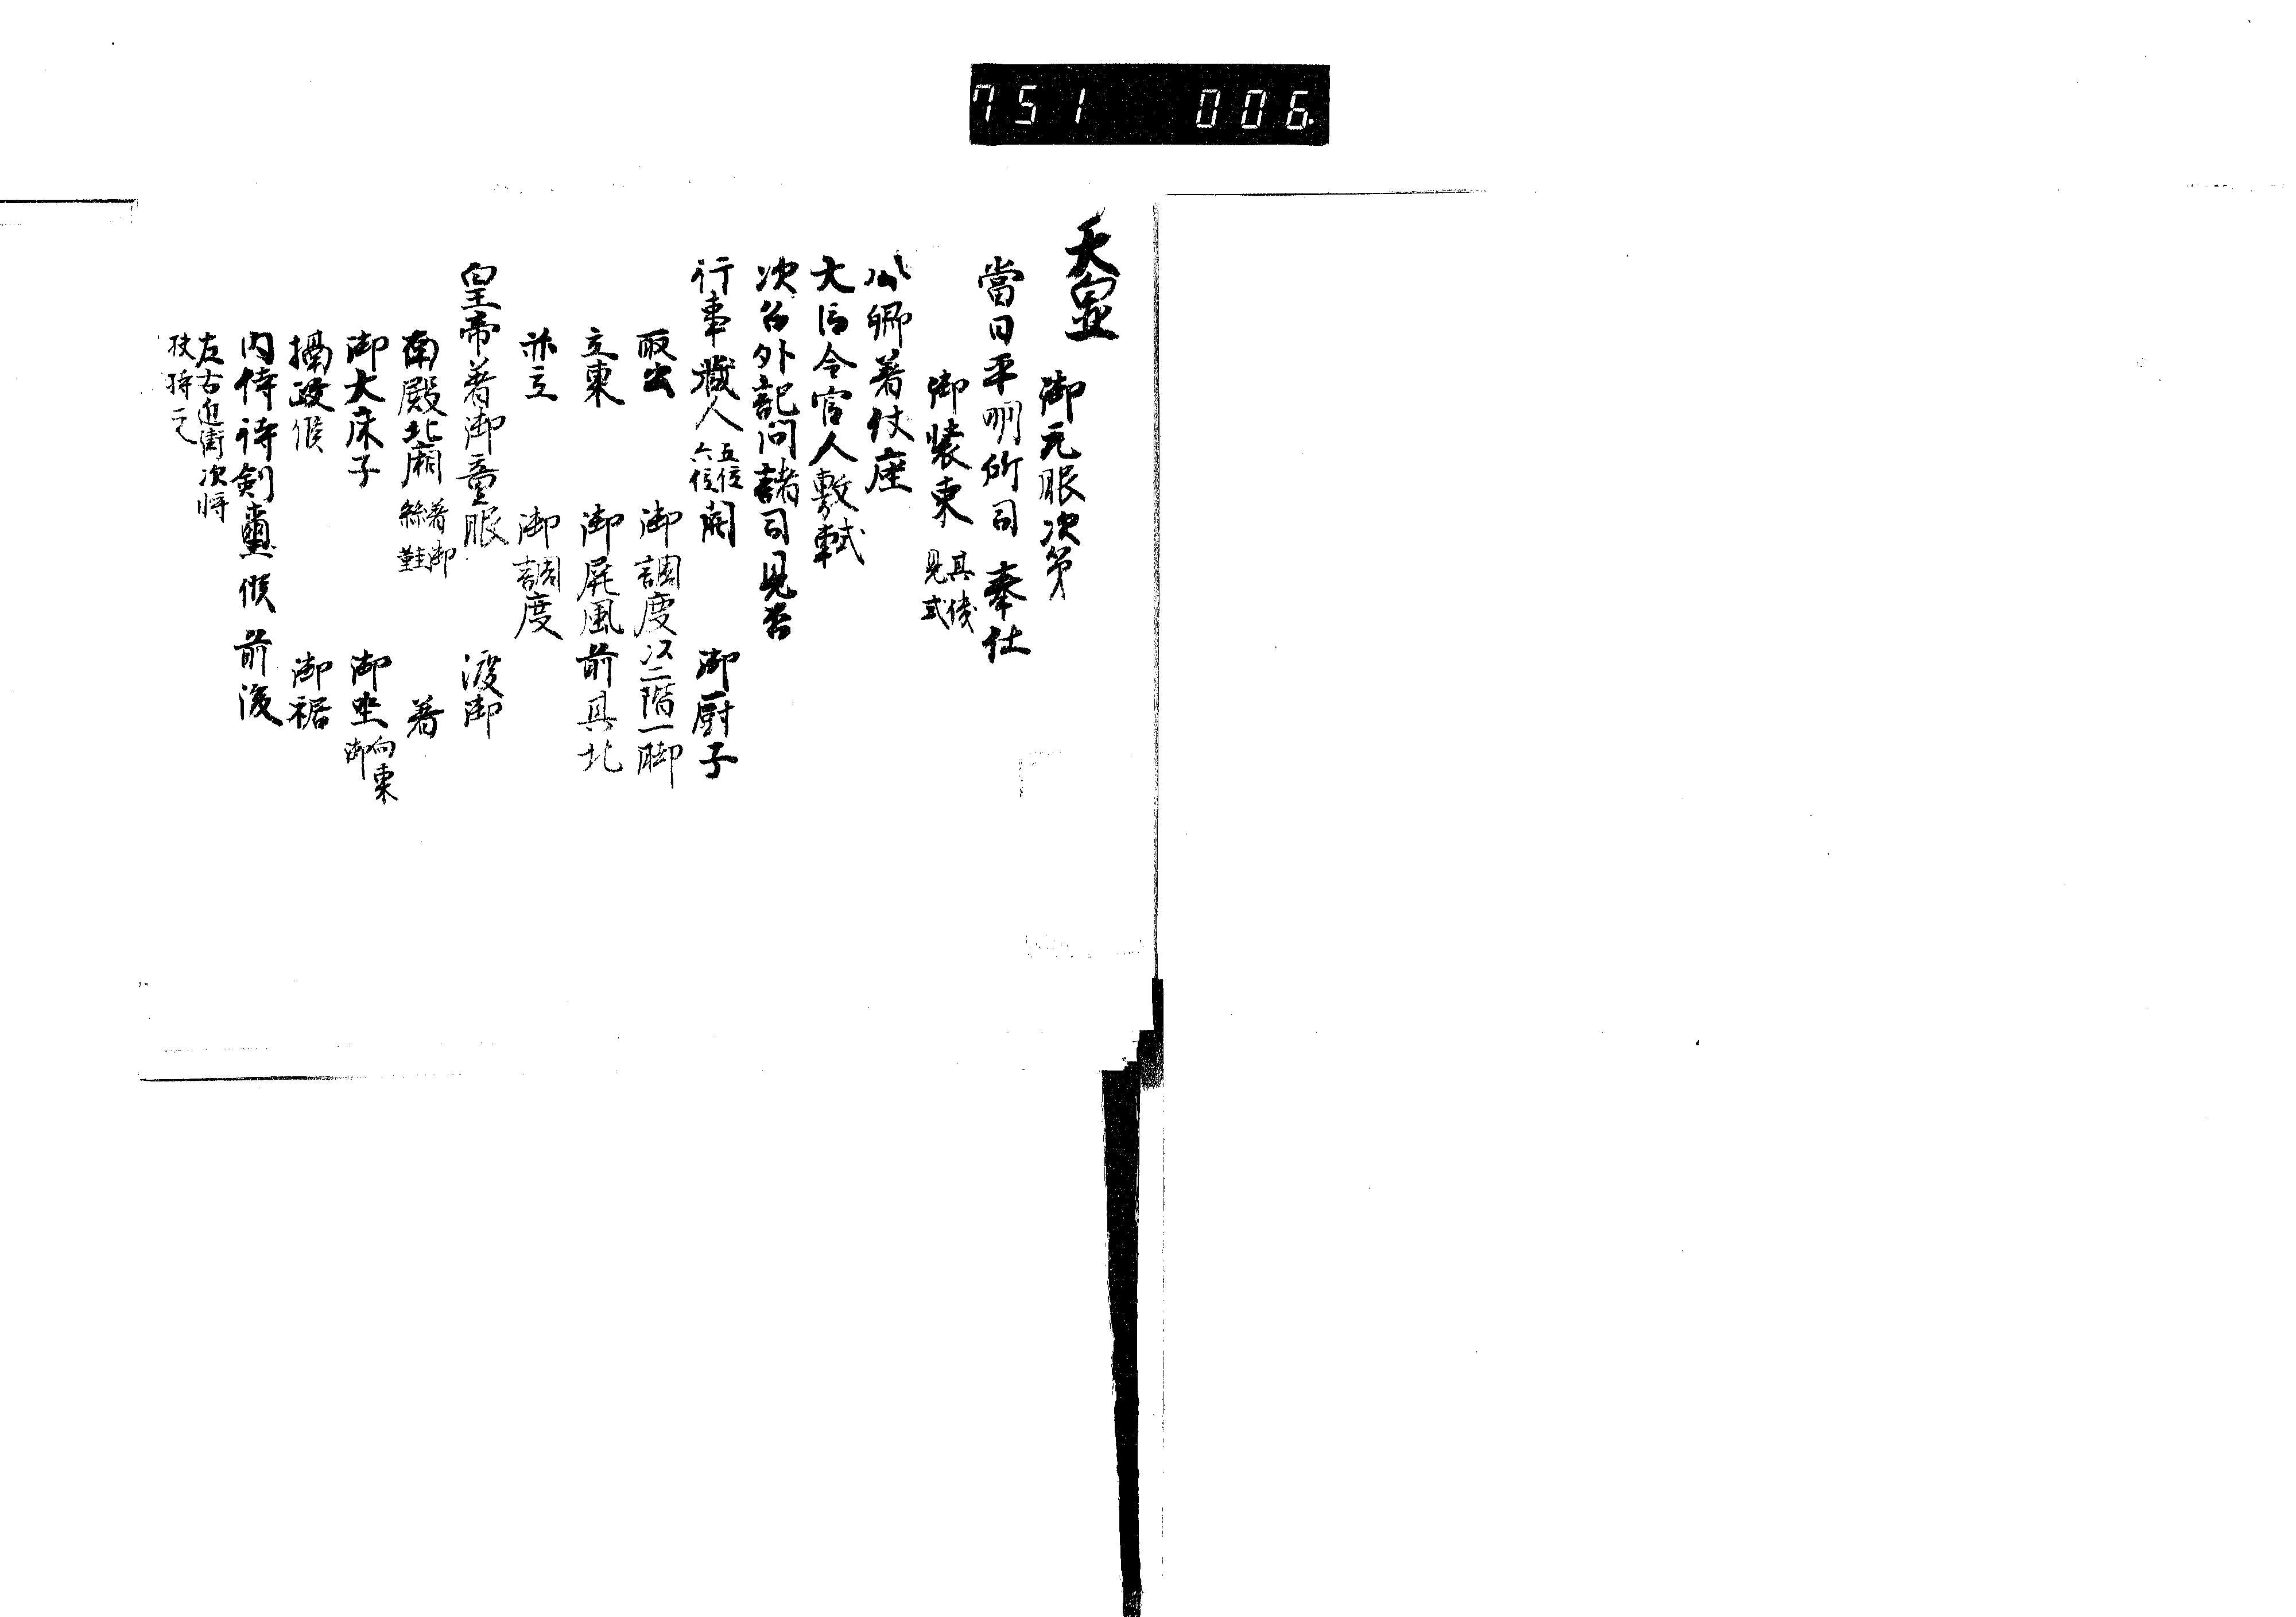 751 006
天皇
御元服次第
當日平明所司奉仕
御裝束 具儀見式
公卿著仗座
大臣令官人敷軾
次召外記問諸司見否
行事藏人 五位六位 開 御厨子
取出 御調度以二階一脚
立東 御屏風前具北
亦立 御調度
皇帝著御童服 渡御
南殿北廂 著御絲鞋 著
御大床子 御坐 向東御
攝政候 御裾
内侍持剣璽候前後
左右近衛次將
扶持之